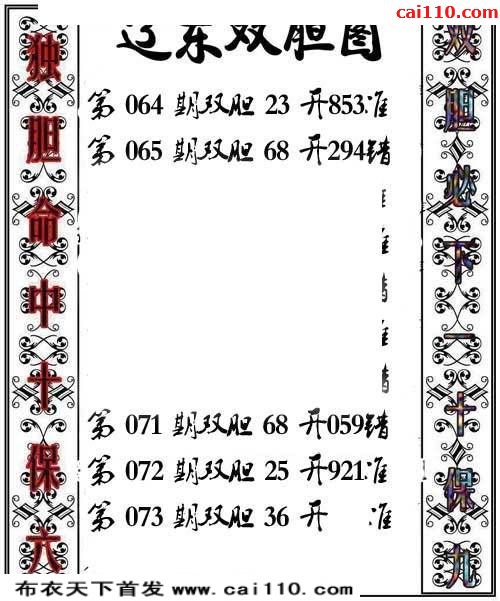 cai110.com
辽东双胆图
独胆命中十保六
双胆必下一十保九
第 064 期双胆 23 开853准
第 065 期双胆 68 开294错
准
准
错
准
错
第 071 期双胆 68 开059错
第 072 期双胆 25 开921准
第 073 期双胆 36 开 准
布衣天下首发 www.cai110.com